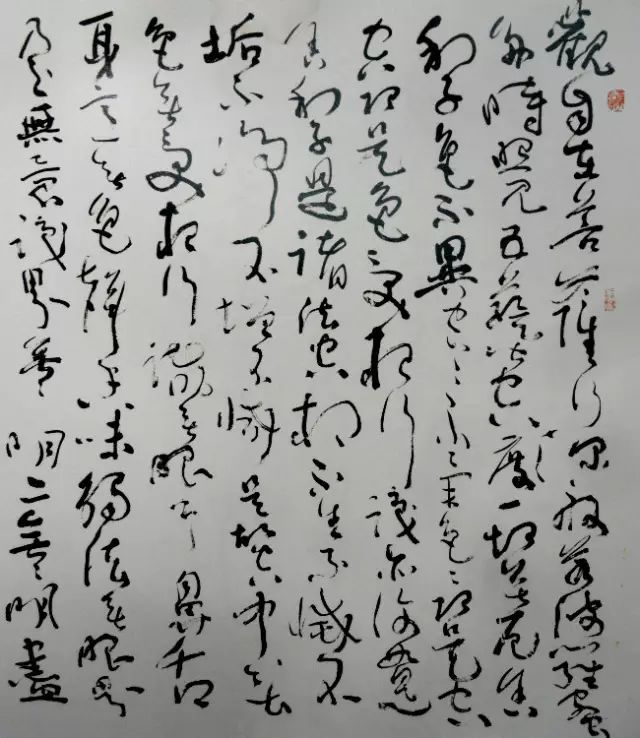 觀自在菩薩行深般若波羅蜜
多時照見五蘊皆空度一切苦厄舍
利子色不異空〻不異色〻即是空
空即是色受想行識亦復如是
舍利子是諸法空相不生不滅不
垢不淨不增不減是故空中無
色無受想行識無眼耳鼻舌
身意無色聲香味觸法無眼界
乃至無意識界無明亦無明盡